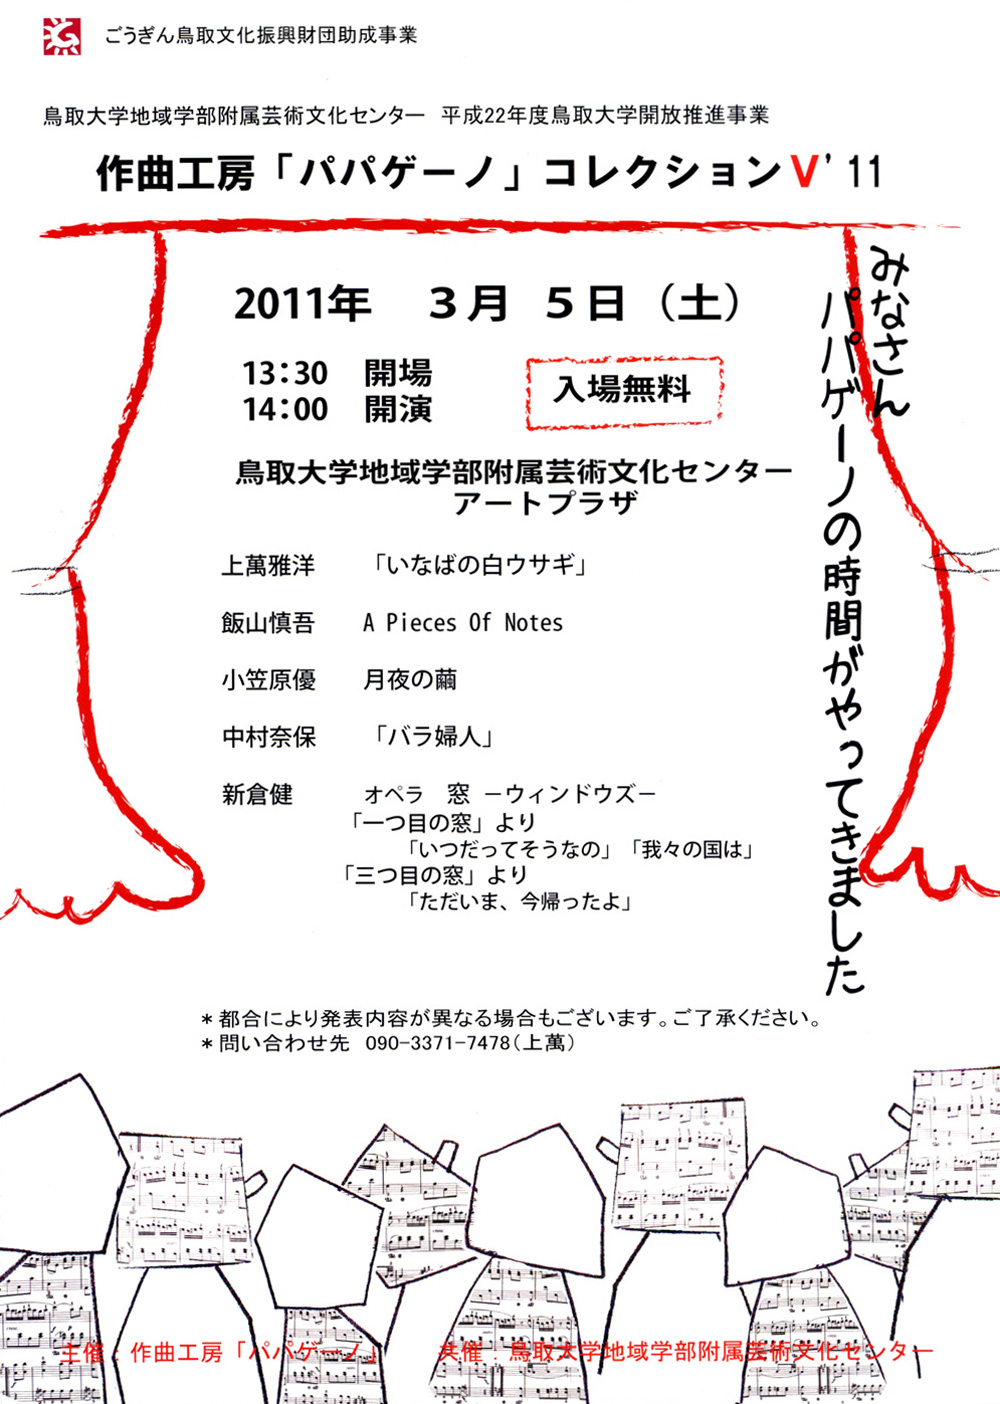 ごうぎん鳥取文化振興財団助成事業
鳥取大学地域学部附属芸術文化センター 平成22年度鳥取大学開放推進事業
作曲工房「パパゲーノ」コレクションⅤ'11
2011年 3月 5日（土）
13:30 開場
14:00 開演
入場無料
鳥取大学地域学部附属芸術文化センター
アートプラザ
みなさん
パパゲーノの時間がやってきました
上萬雅洋 「いなばの白ウサギ」
飯山慎吾 A Pieces Of Notes
小笠原優 月夜の繭
中村奈保 「バラ婦人」
新倉健 オペラ 窓 －ウィンドウズ－
「一つ目の窓」より
「いつだってそうなの」「我々の国は」
「三つ目の窓」より
「ただいま、今帰ったよ」
＊都合により発表内容が異なる場合もございます。ご了承ください。
＊問い合わせ先 090-3371-7478（上萬）
主催：作曲工房「パパゲーノ」 共催：鳥取大学地域学部附属芸術文化センター